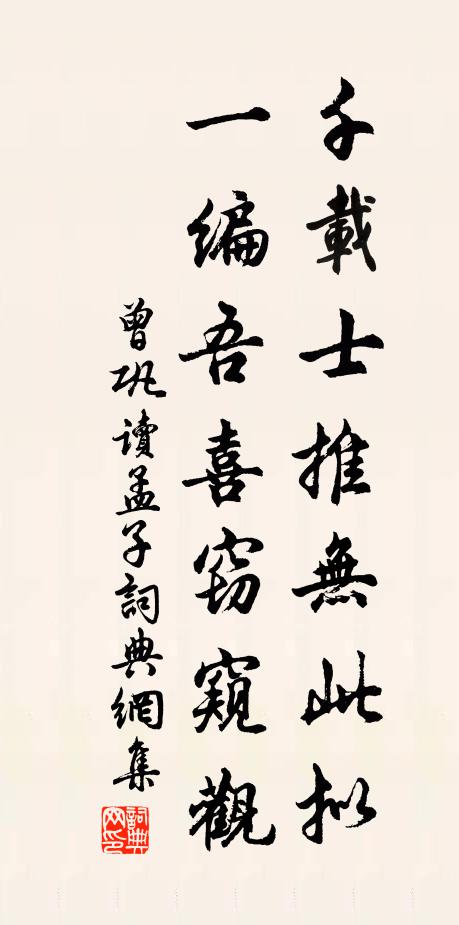 千載士推無此拟
一編吾喜窃窺觀
曾巩讀孟子詞典網集
詞典网印